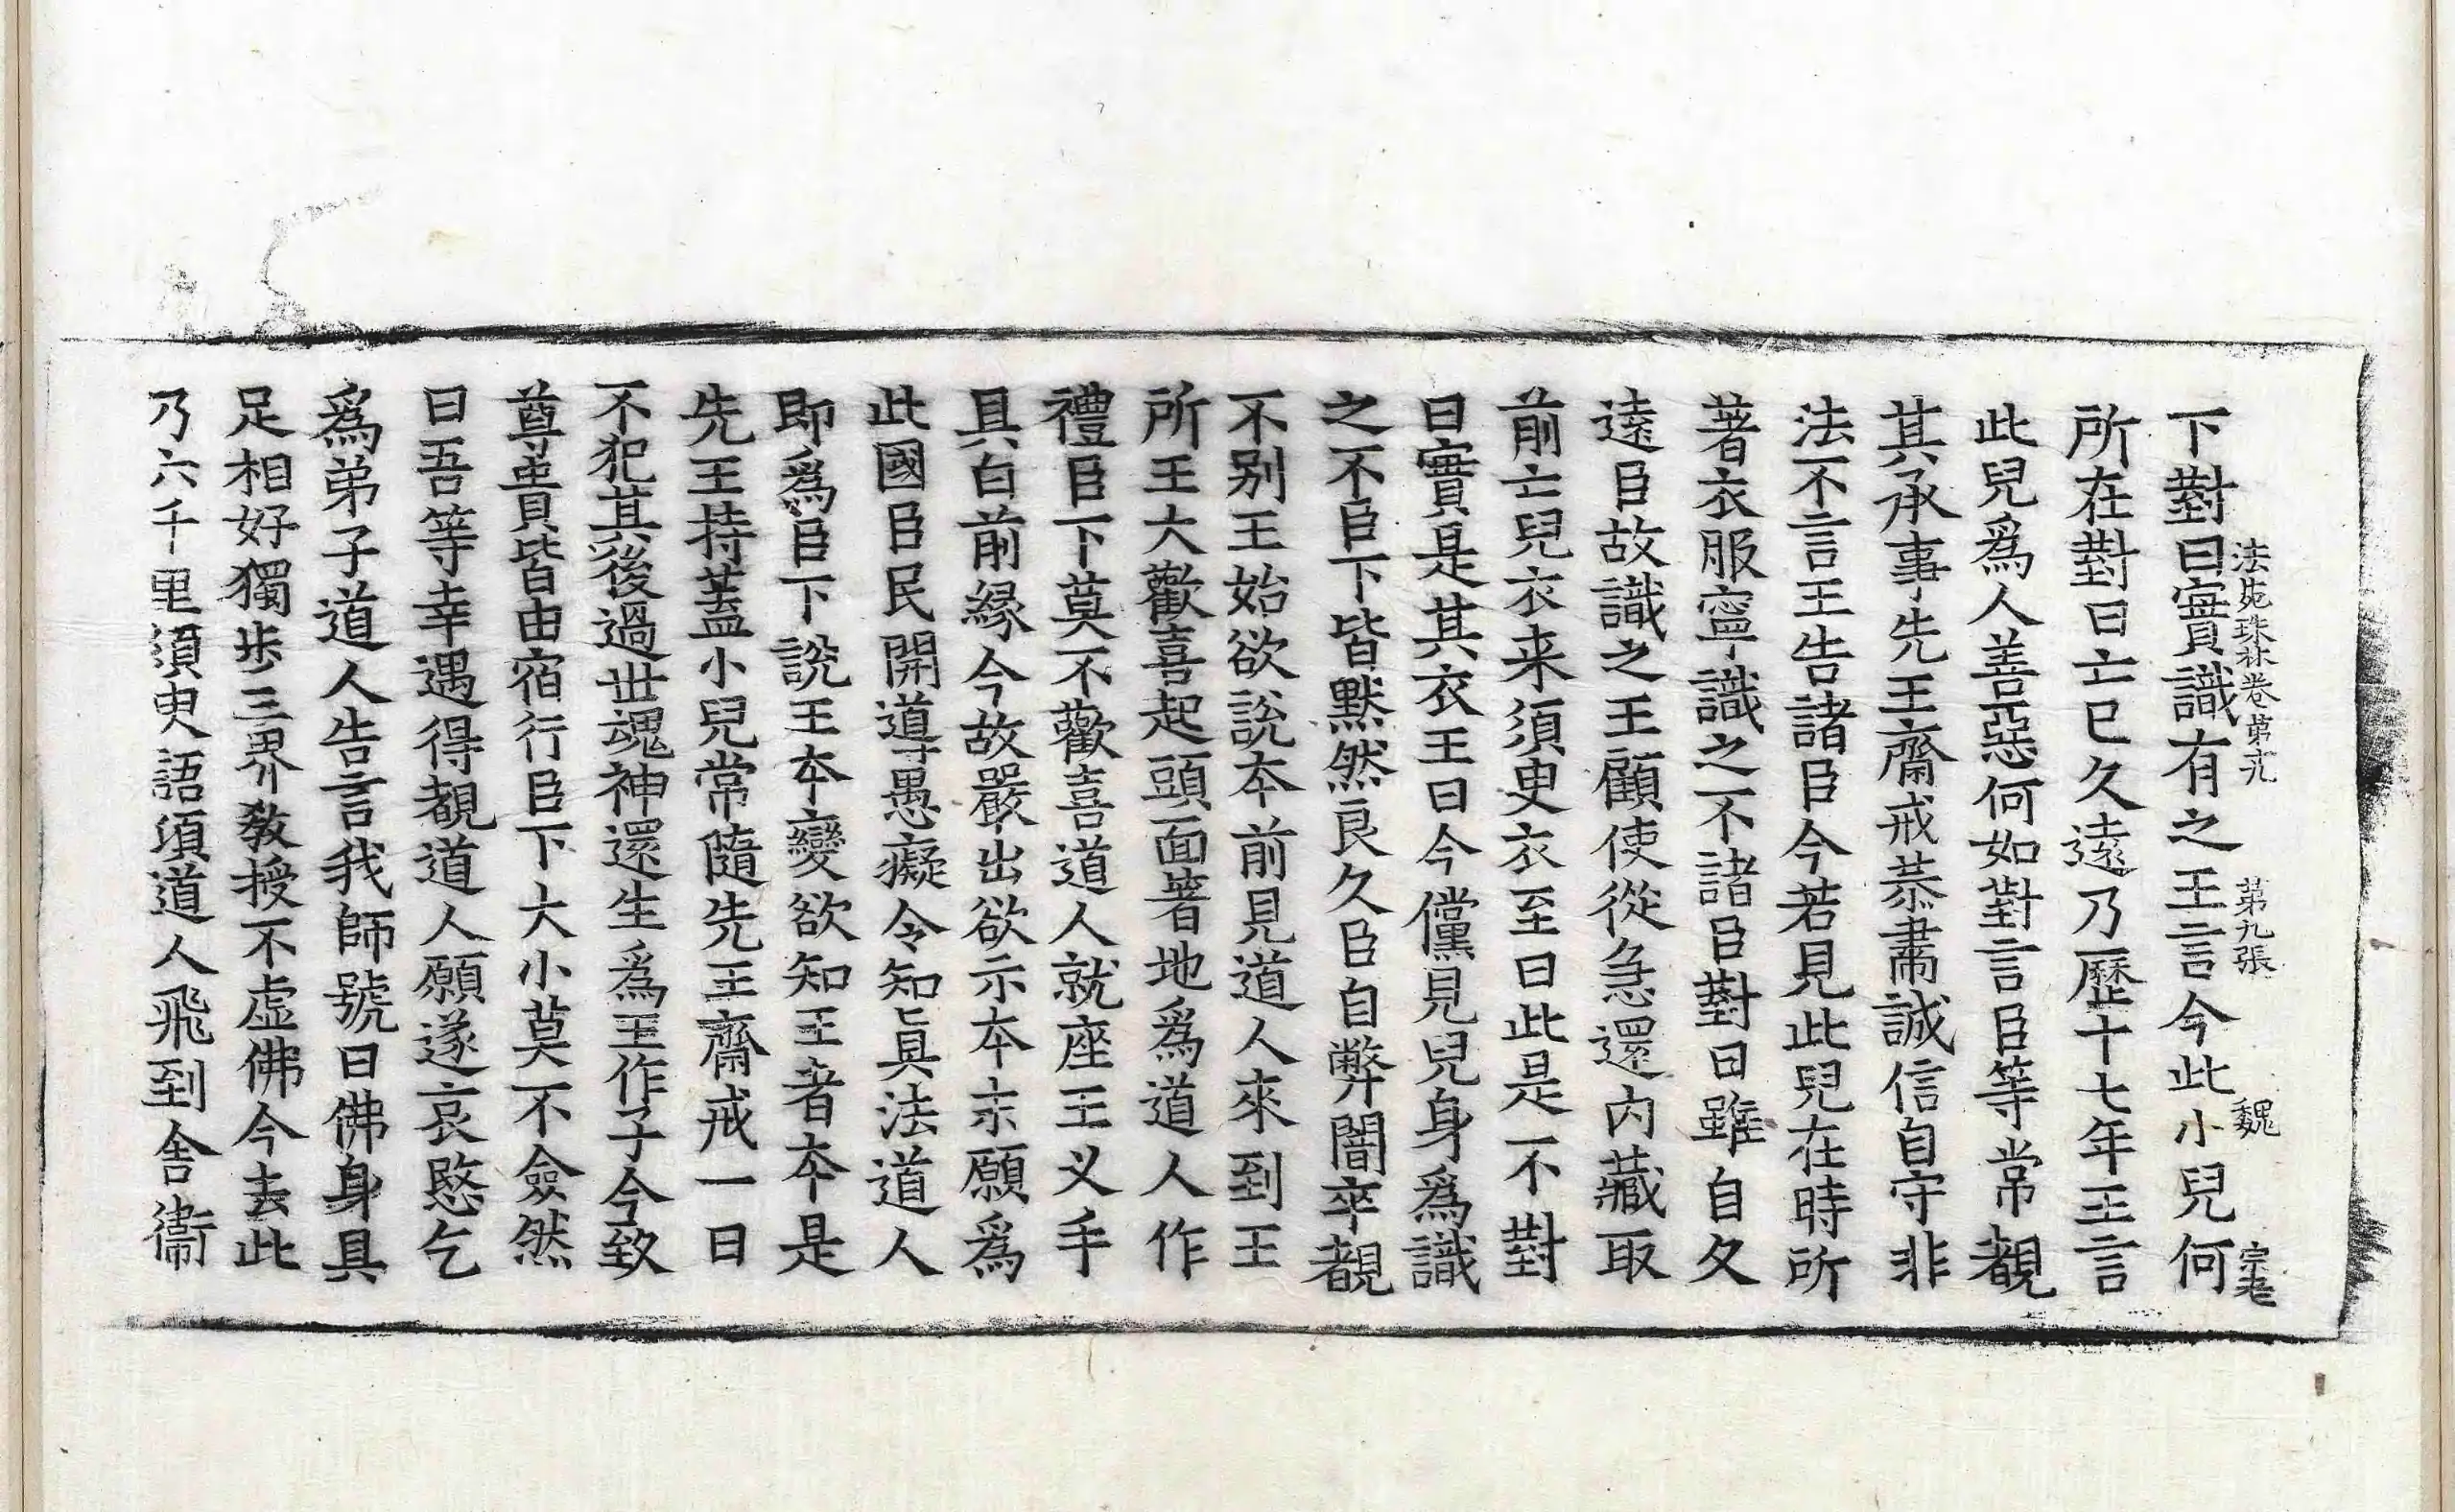 下對曰實識有之王言今此小兒何
法苑珠林卷第 第九張 魏 宗老
所在對曰亡已久遠乃歷十七年王言
此兒爲人善惡何如對言臣等常覩
其承事先王齋戒恭肅誠信自守非
法不言王告諸臣今若見此兒在時所
著衣服寧識之不諸臣對曰雖自久
遠臣故識之王顧使從急還内藏取
前亡兒衣来須臾衣至曰此是不對
曰實是其衣王曰今儻見兒身爲識
之不臣下皆默然良久臣自弊闇卒覩
不别王始欲說本前見道人來到王
所王大歡喜起頭面著地爲道人作
禮臣下莫不歡喜道人就座王义手
具白前緣今故嚴出欲示本末願爲
此國臣民開導愚癡令知眞法道人
即爲臣下說王本變欲知王者本是
先王持蓋小兒常隨先王齋戒一日
不犯其後過世魂神還生爲王作子今致
尊貴皆由宿行臣下大小莫不僉然
曰吾等幸遇得覩道人願遂哀愍乞
爲弟子道人告言我師號曰佛身具
足相好獨步三界教授不虛佛今去此
乃六千里須臾語頃道人飛到舍衞